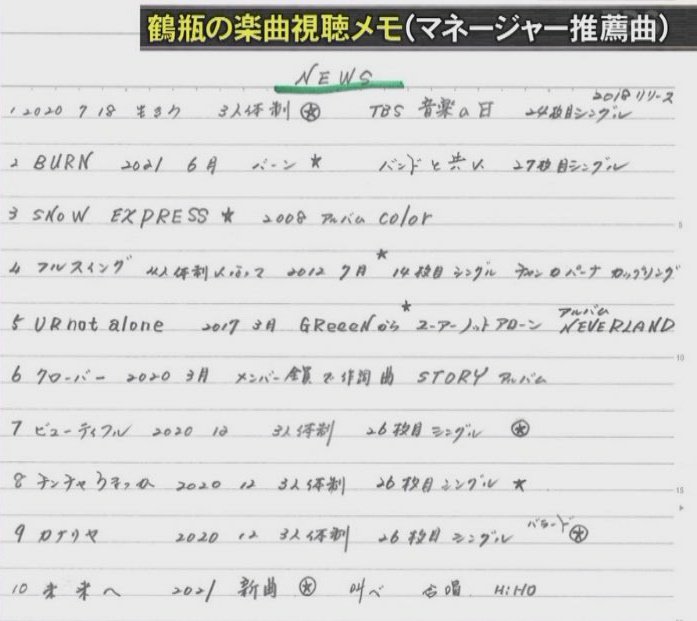 鶴瓶の楽曲視聴メモ(マネージャー推薦曲)
NEWS
2018リリース
1 2020 7 18 生きろ 3人体制 ⍟ TBS 音楽の日 24枚目シングル
2 BURN 2021 6月 バーン ★ バンドと共に 27枚目シングル
3 SNOW EXPRESS ★ 2008 アルバム color
4 フルスイング 4人体制になって 2012 7月 ★ 14枚目シングル チャンカパーナ カップリング
5 URnot alone 2017 3月 GReeeNから ★ ユーアーノットアローン アルバム NEVERLAND
6 クローバー 2020 3月 メンバー全員で作詞曲 STORY アルバム
7 ビューティフル 2020 12 3人体制 26枚目シングル ⍟
8 チンチャうまっか 2020 12 3人体制 26枚目シングル ★
9 カナリヤ 2020 12 3人体制 26枚目シングル バラード ⍟
10 未来へ 2021 新曲 ⍟ 叫べ 合唱 HiHO
5
10
15